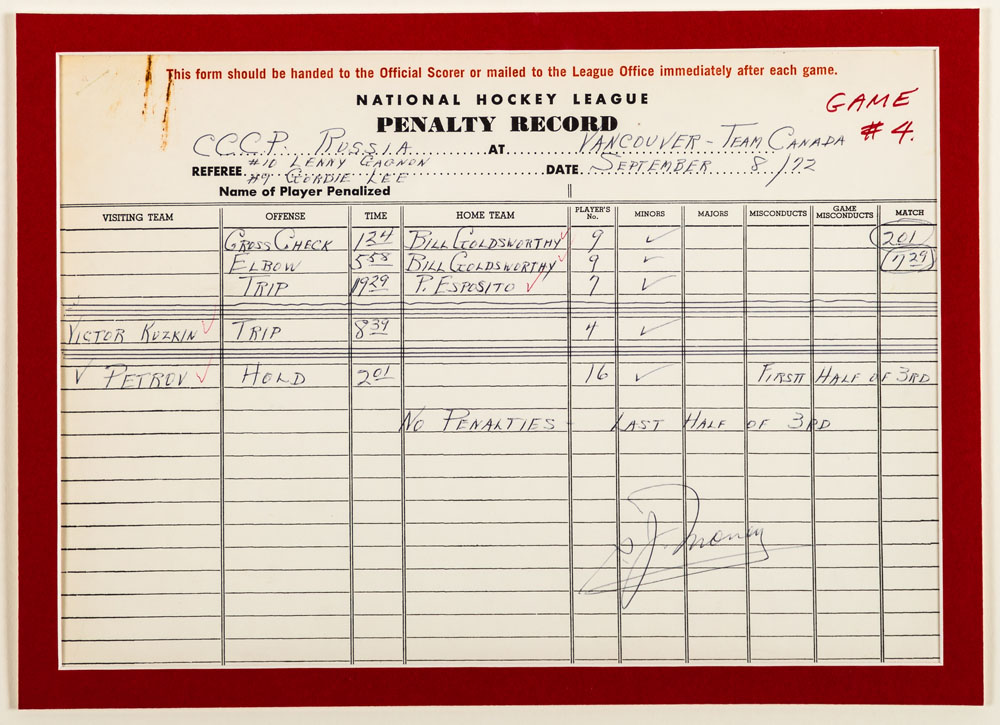 This form should be handed to the Official Scorer or mailed to the League Office immediately after each game.
NATIONAL HOCKEY LEAGUE
GAME
PENALTY RECORD
# 4.
CCCP. RUSSIA AT VANCOUVER - TEAM CANADA
#10 LENNY GAGNON
REFEREE DATE SEPTEMBER 8/72
#9 GORDIE LEE
Name of Player Penalized
VISITING TEAM OFFENSE TIME HOME TEAM PLAYER'S No. MINORS MAJORS MISCONDUCTS GAME MISCONDUCTS MATCH
CROSS CHECK 1 24 BILL GOLDSWORTHY ✓ 9 ✓ 2 01
ELBOW 5 58 BILL GOLDSWORTHY ✓ 9 ✓ 7 29
TRIP 19 29 P. ESPOSITO ✓ 7 ✓
VICTOR KUZKIN ✓ TRIP 8 39 4 ✓
✓ PETROV ✓ HOLD 2 01 16 ✓ FIRST HALF OF 3RD
NO PENALTIES - LAST HALF OF 3RD